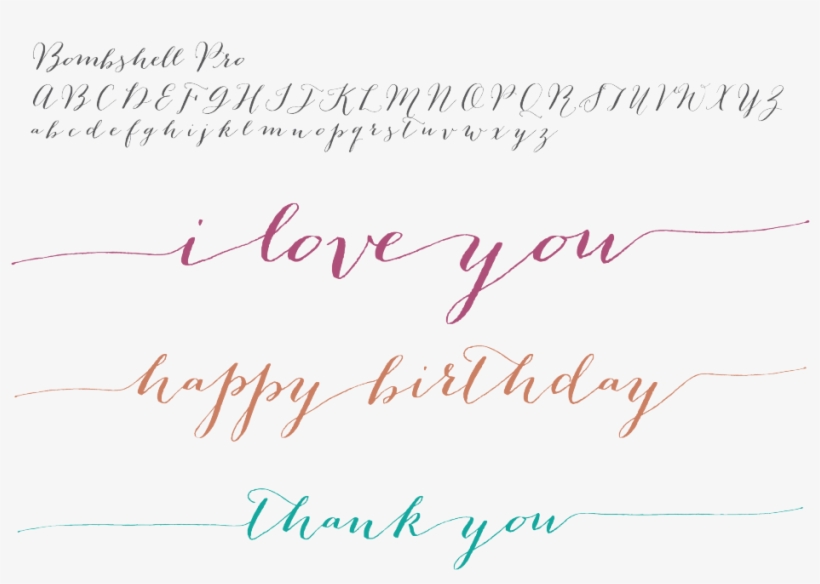 Bombshell Pro
A B C D E F G H I J K L M N O P Q R S T U V W X Y Z
a b c d e f g h i j k l m n o p q r s t u v w x y z
i love you
happy birthday
thank you